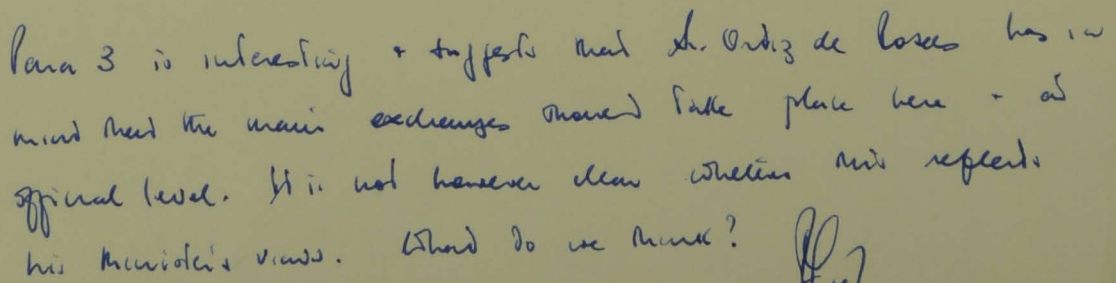 Para 3 is interesting + suggests that Sr. Ortiz de Rosas has in
mind that the main exchanges should take place here + at
official level. It is not however clear whether this reflects
his Minister's views. What do we think?